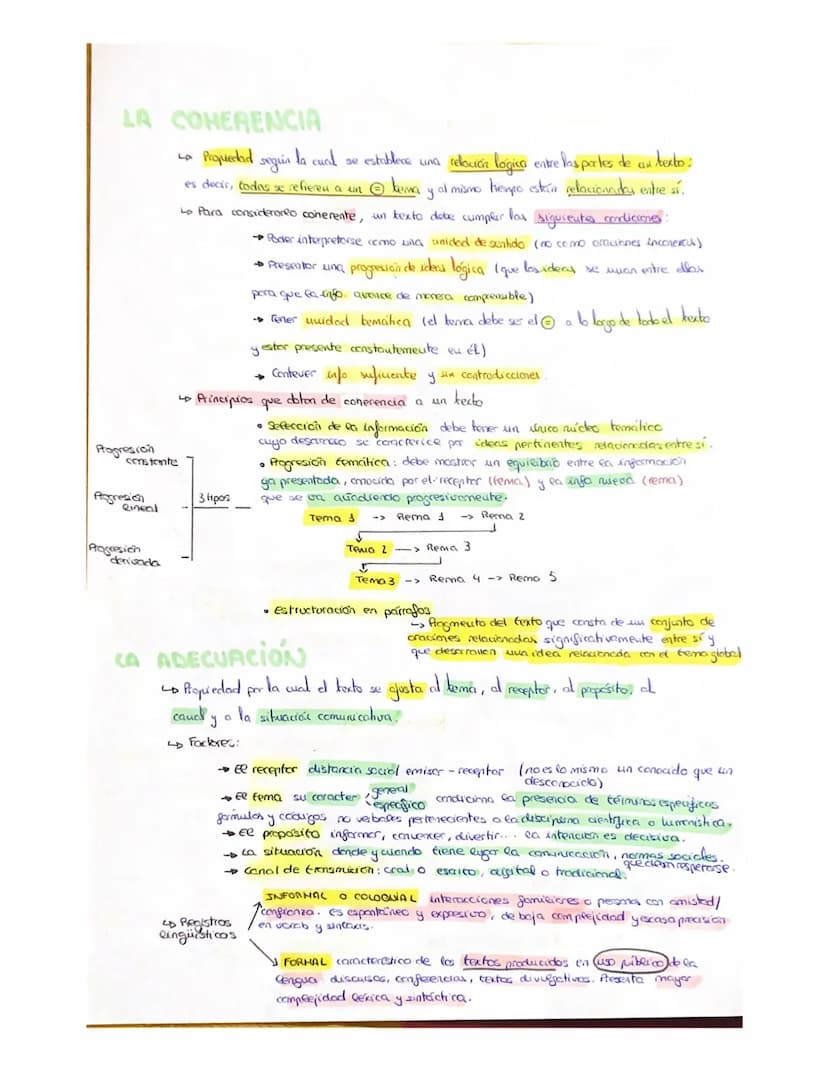 LA COHERENCIA
↳ Propiedad según la cual se establece una relación lógica entre las partes de un texto:
es decir, todas se refieren a un (=) tema y al mismo tiempo están relacionadas entre sí.
↳ Para considerarlo coherente, un texto debe cumplir las siguientes condiciones:
→ Poder interpretarse como una unidad de sentido (no como oraciones inconexas)
→ Presentar una progresión de ideas lógica (que las ideas se unan entre ellas
para que la info. avance de manera comprensible)
→ Tener unidad temática (el tema debe ser el (=) a lo largo de todo el texto
y estar presente constantemente en él)
→ Contener info suficiente y sin contradicciones.
↳ Principios que dotan de coherencia a un texto
• Selección de la información debe tener un único núcleo temático
cuyo desarrollo se caracterice por ideas pertinentes relacionadas entre sí.
• Progresión temática: debe mostrar un equilibrio entre la información
ya presentada, conocida por el receptor (tema) y la info nueva (rema)
que se va añadiendo progresivamente.
Progresión
constante
Progresión
lineal
Progresión
derivada
3 tipos
Tema 1 -> Rema 1 -> Rema 2
Tema 2 -> Rema 3
Tema 3 -> Rema 4 -> Rema 5
• Estructuración en párrafos
↳ Fragmento del texto que consta de un conjunto de
oraciones relacionadas significativamente entre sí y
que desarrollan una idea relacionada con el tema global
LA ADECUACIÓN
↳ Propiedad por la cual el texto se ajusta al tema, al receptor, al propósito, al
canal y a la situación comunicativa.
↳ Factores:
→ El receptor distancia social emisor - receptor (no es lo mismo un conocido que un
desconocido)
→ El tema su caracter general
específico condiciona la presencia de términos específicos
fórmulas y códigos no verbales pertenecientes a la disciplina científica o humanística.
→ El propósito informar, convencer, divertir... la intención es decisiva.
→ La situación donde y cuando tiene lugar la comunicación, normas sociales.
que deben respetarse.
→ Canal de transmisión: oral o escrito, digital o tradicional.
↳ Registros
lingüísticos
INFORMAL O COLOQUIAL interacciones familiares o personas con amistad/
confianza. es espontáneo y expresivo, de baja complejidad y escasa precisión
en vocab y sintaxis.
FORMAL característico de los textos producidos en uso público de la
lengua discursos, conferencias, textos divulgativos. Presenta mayor
complejidad léxica y sintáctica.